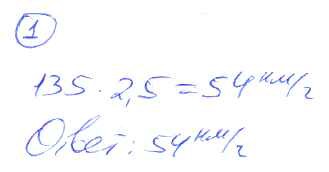 1
135 · 2,5 = 54 км/г
Ответ: 54 км/г